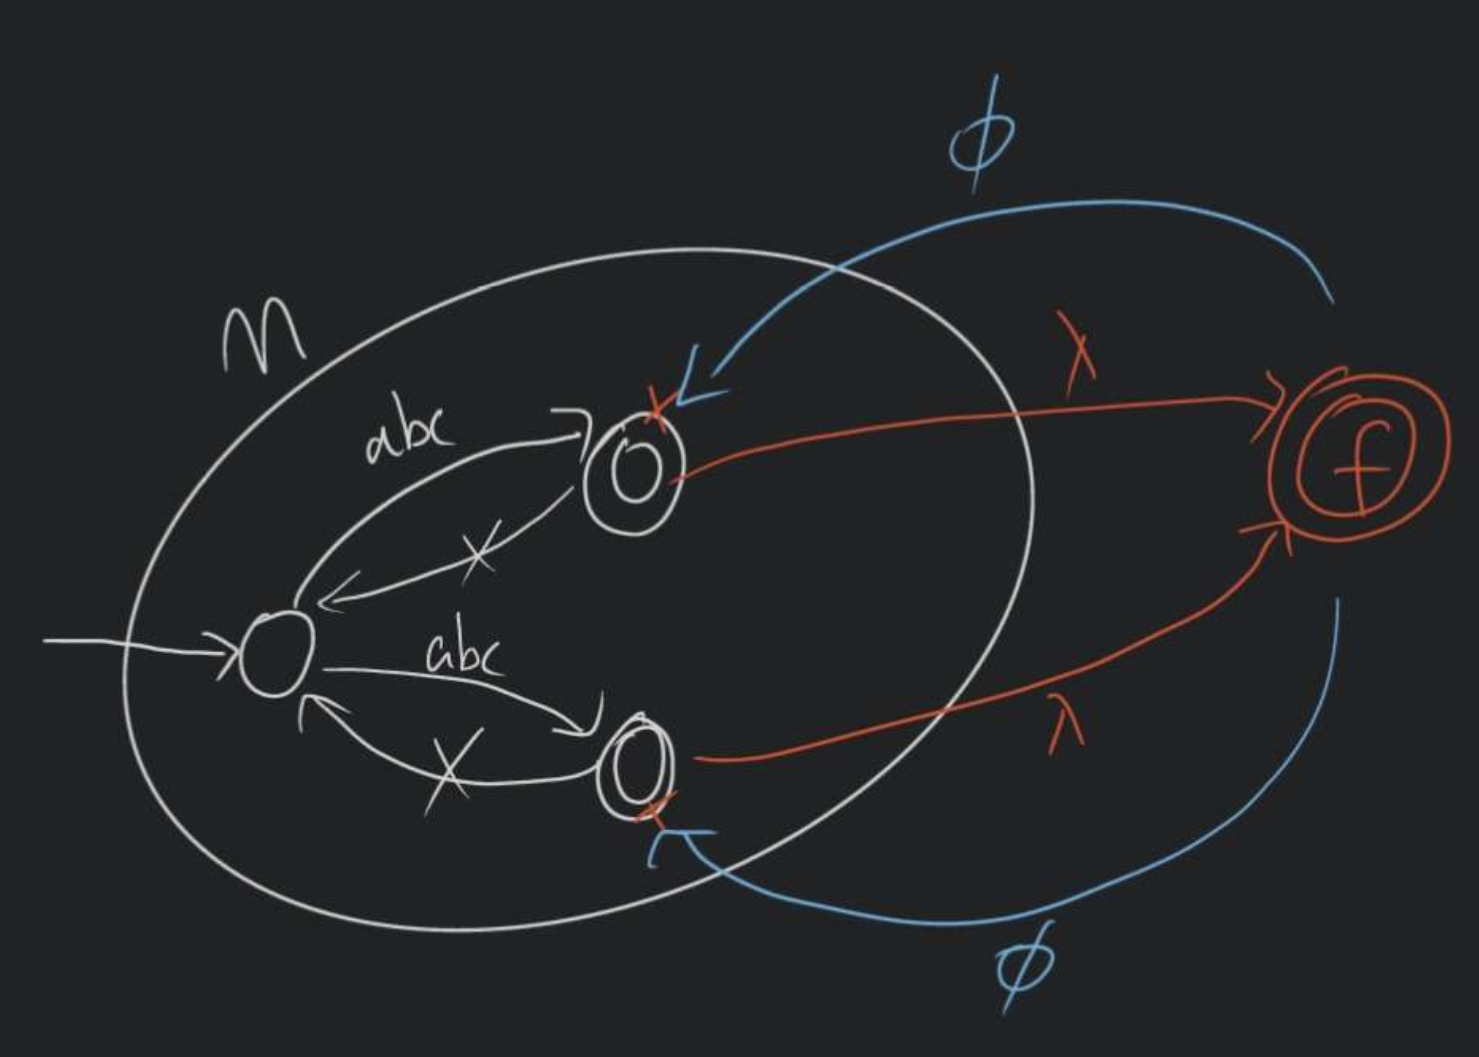 ϕ
M
λ
abc
f
x
abc
λ
x
ϕ